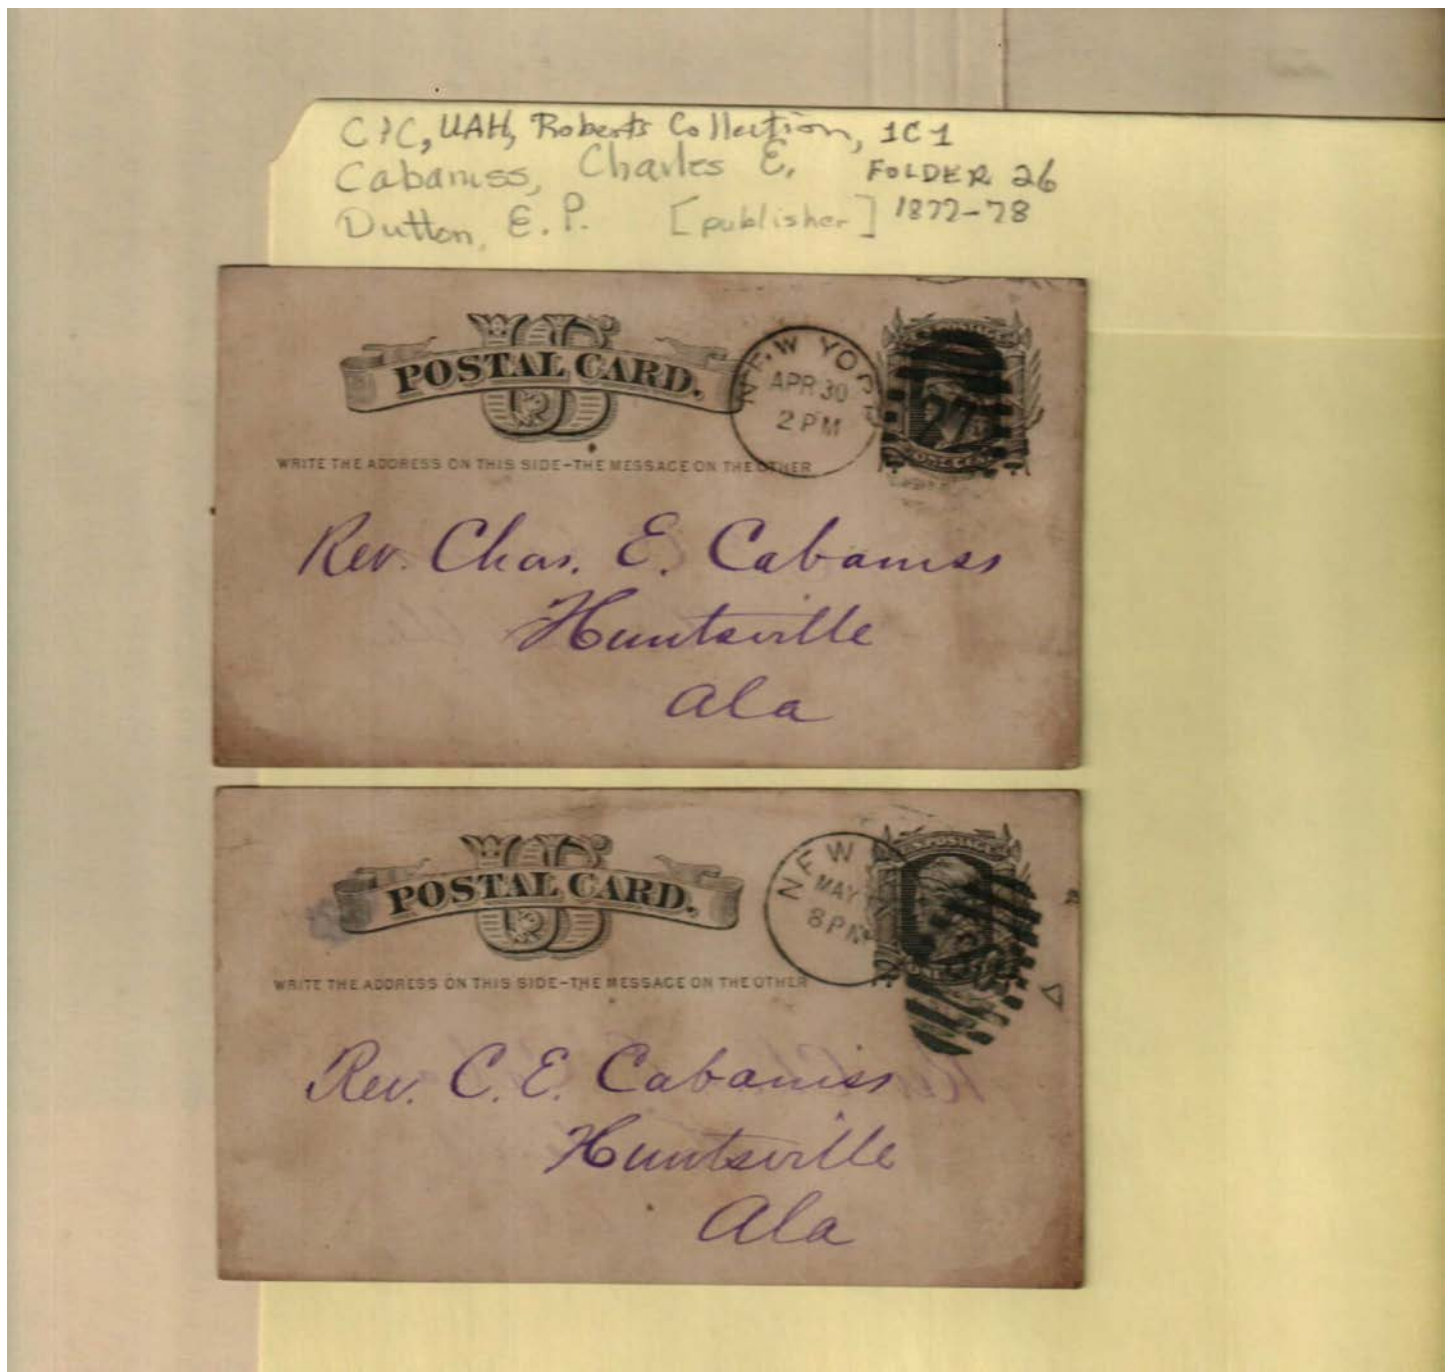 C&C, UAH, Roberts Collection, 1C1
Cabaniss, Charles E. FOLDER 26
Dutton, E.P. [publisher] 1877-78
US
POSTAL CARD.
NEW YORK
APR 30
2 PM
U.S. POSTAGE
27
ONE CENT
WRITE THE ADDRESS ON THIS SIDE-THE MESSAGE ON THE OTHER
Rev. Chas. E. Cabaniss
Huntsville
Ala
US
POSTAL CARD.
NEW
MAY
8 PM
U.S. POSTAGE
WRITE THE ADDRESS ON THIS SIDE-THE MESSAGE ON THE OTHER
Rev. C. E. Cabaniss
Huntsville
Ala